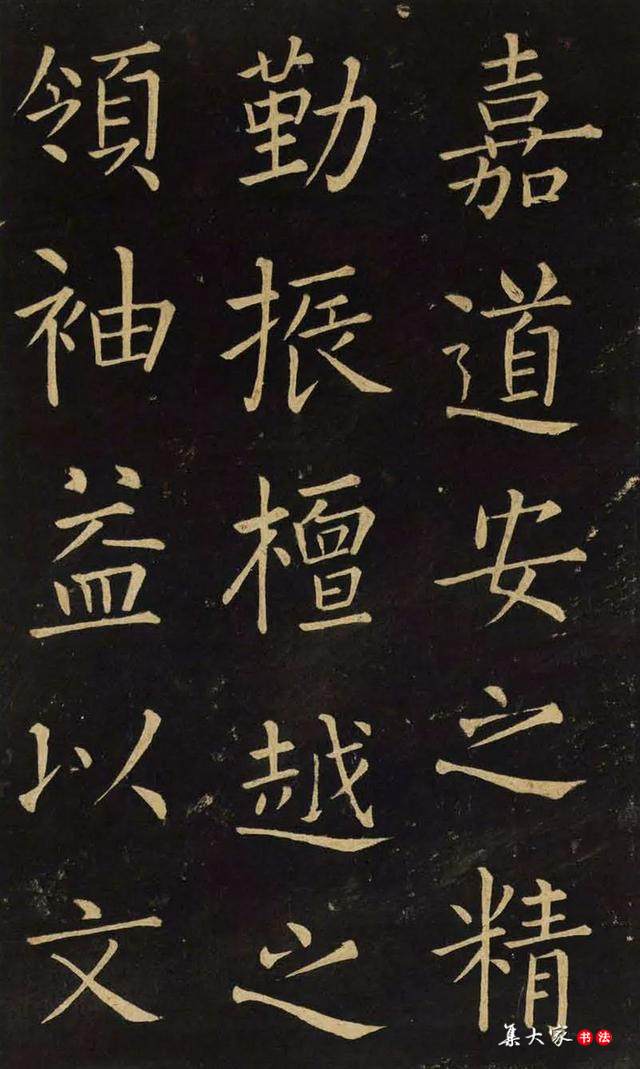 嘉道安之精
勤振檀越之
領袖益以文
集大家书法